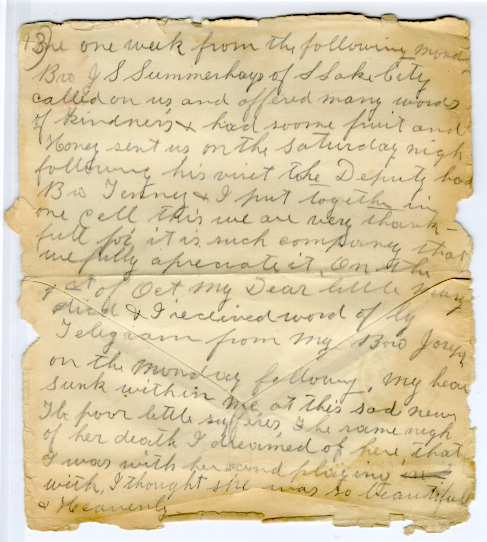 13) one week from the following mond
Bro J S Summerhays of S Lake City
called on us and offered many words
of kindness & had soome fruit and
Honey sent us on the saturday nigh
following his visit the Deputy had
Bro Tenney & I put together in
one cell this we are very thank-
full for it is such company that
we fully apreciate it, On the
1st of Oct My Dear little Mary
died & I received word of by
Telegram from my Bro Joseph
on the monday following, My hear
sunk within me at this sad news
The poor little sufferer, the same nigh
of her death I dreamed of here that
I was with her and playing
with, I thought she was so beautifull
& Heavenly